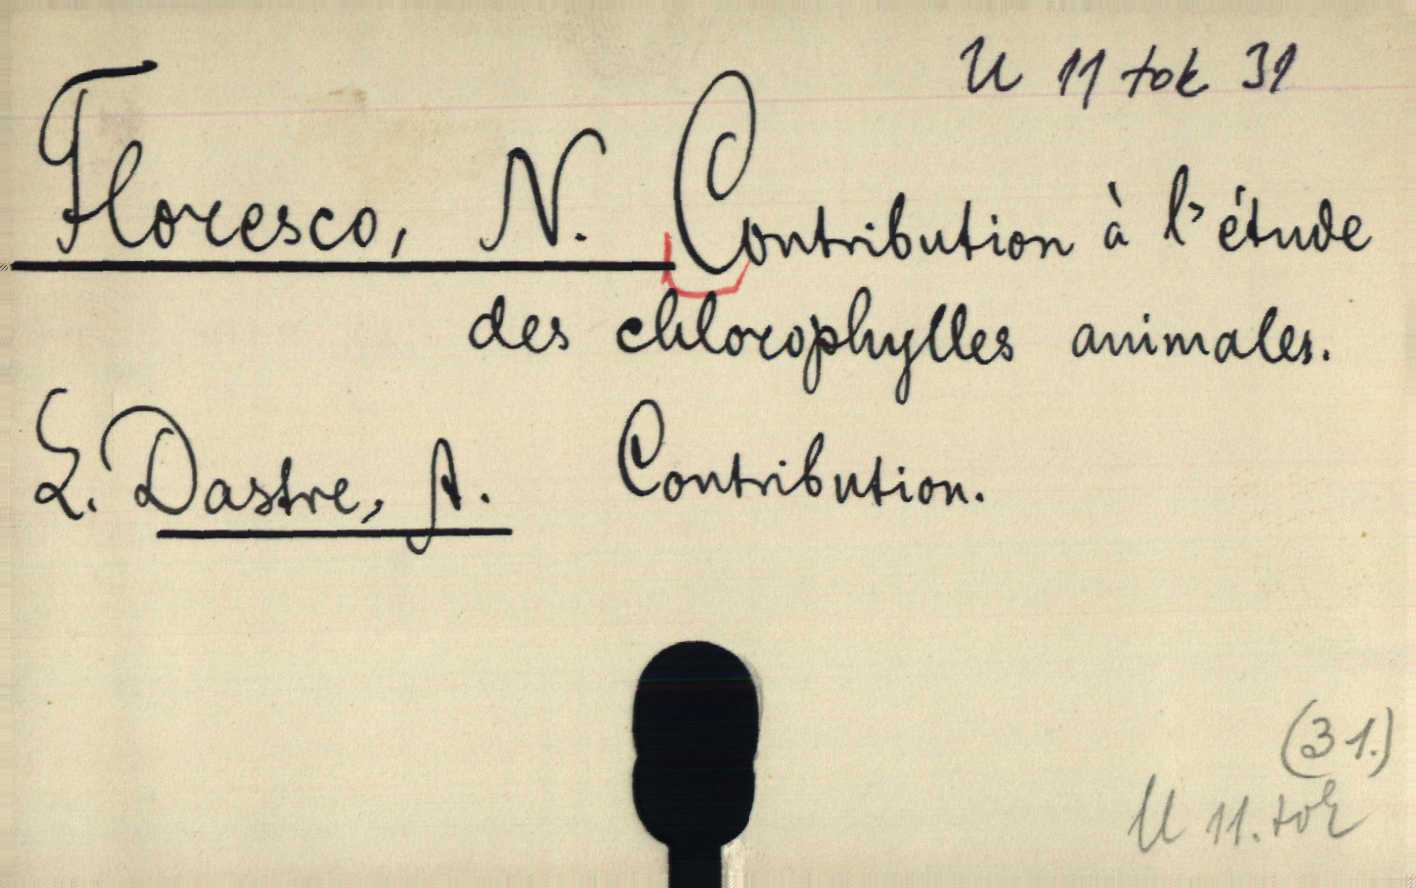 U 11 tok 31
Floresco, N. Contribution à l'étude
des chlorophylles animales.
L. Dastre, A. Contribution.
(31.)
U 11. tok